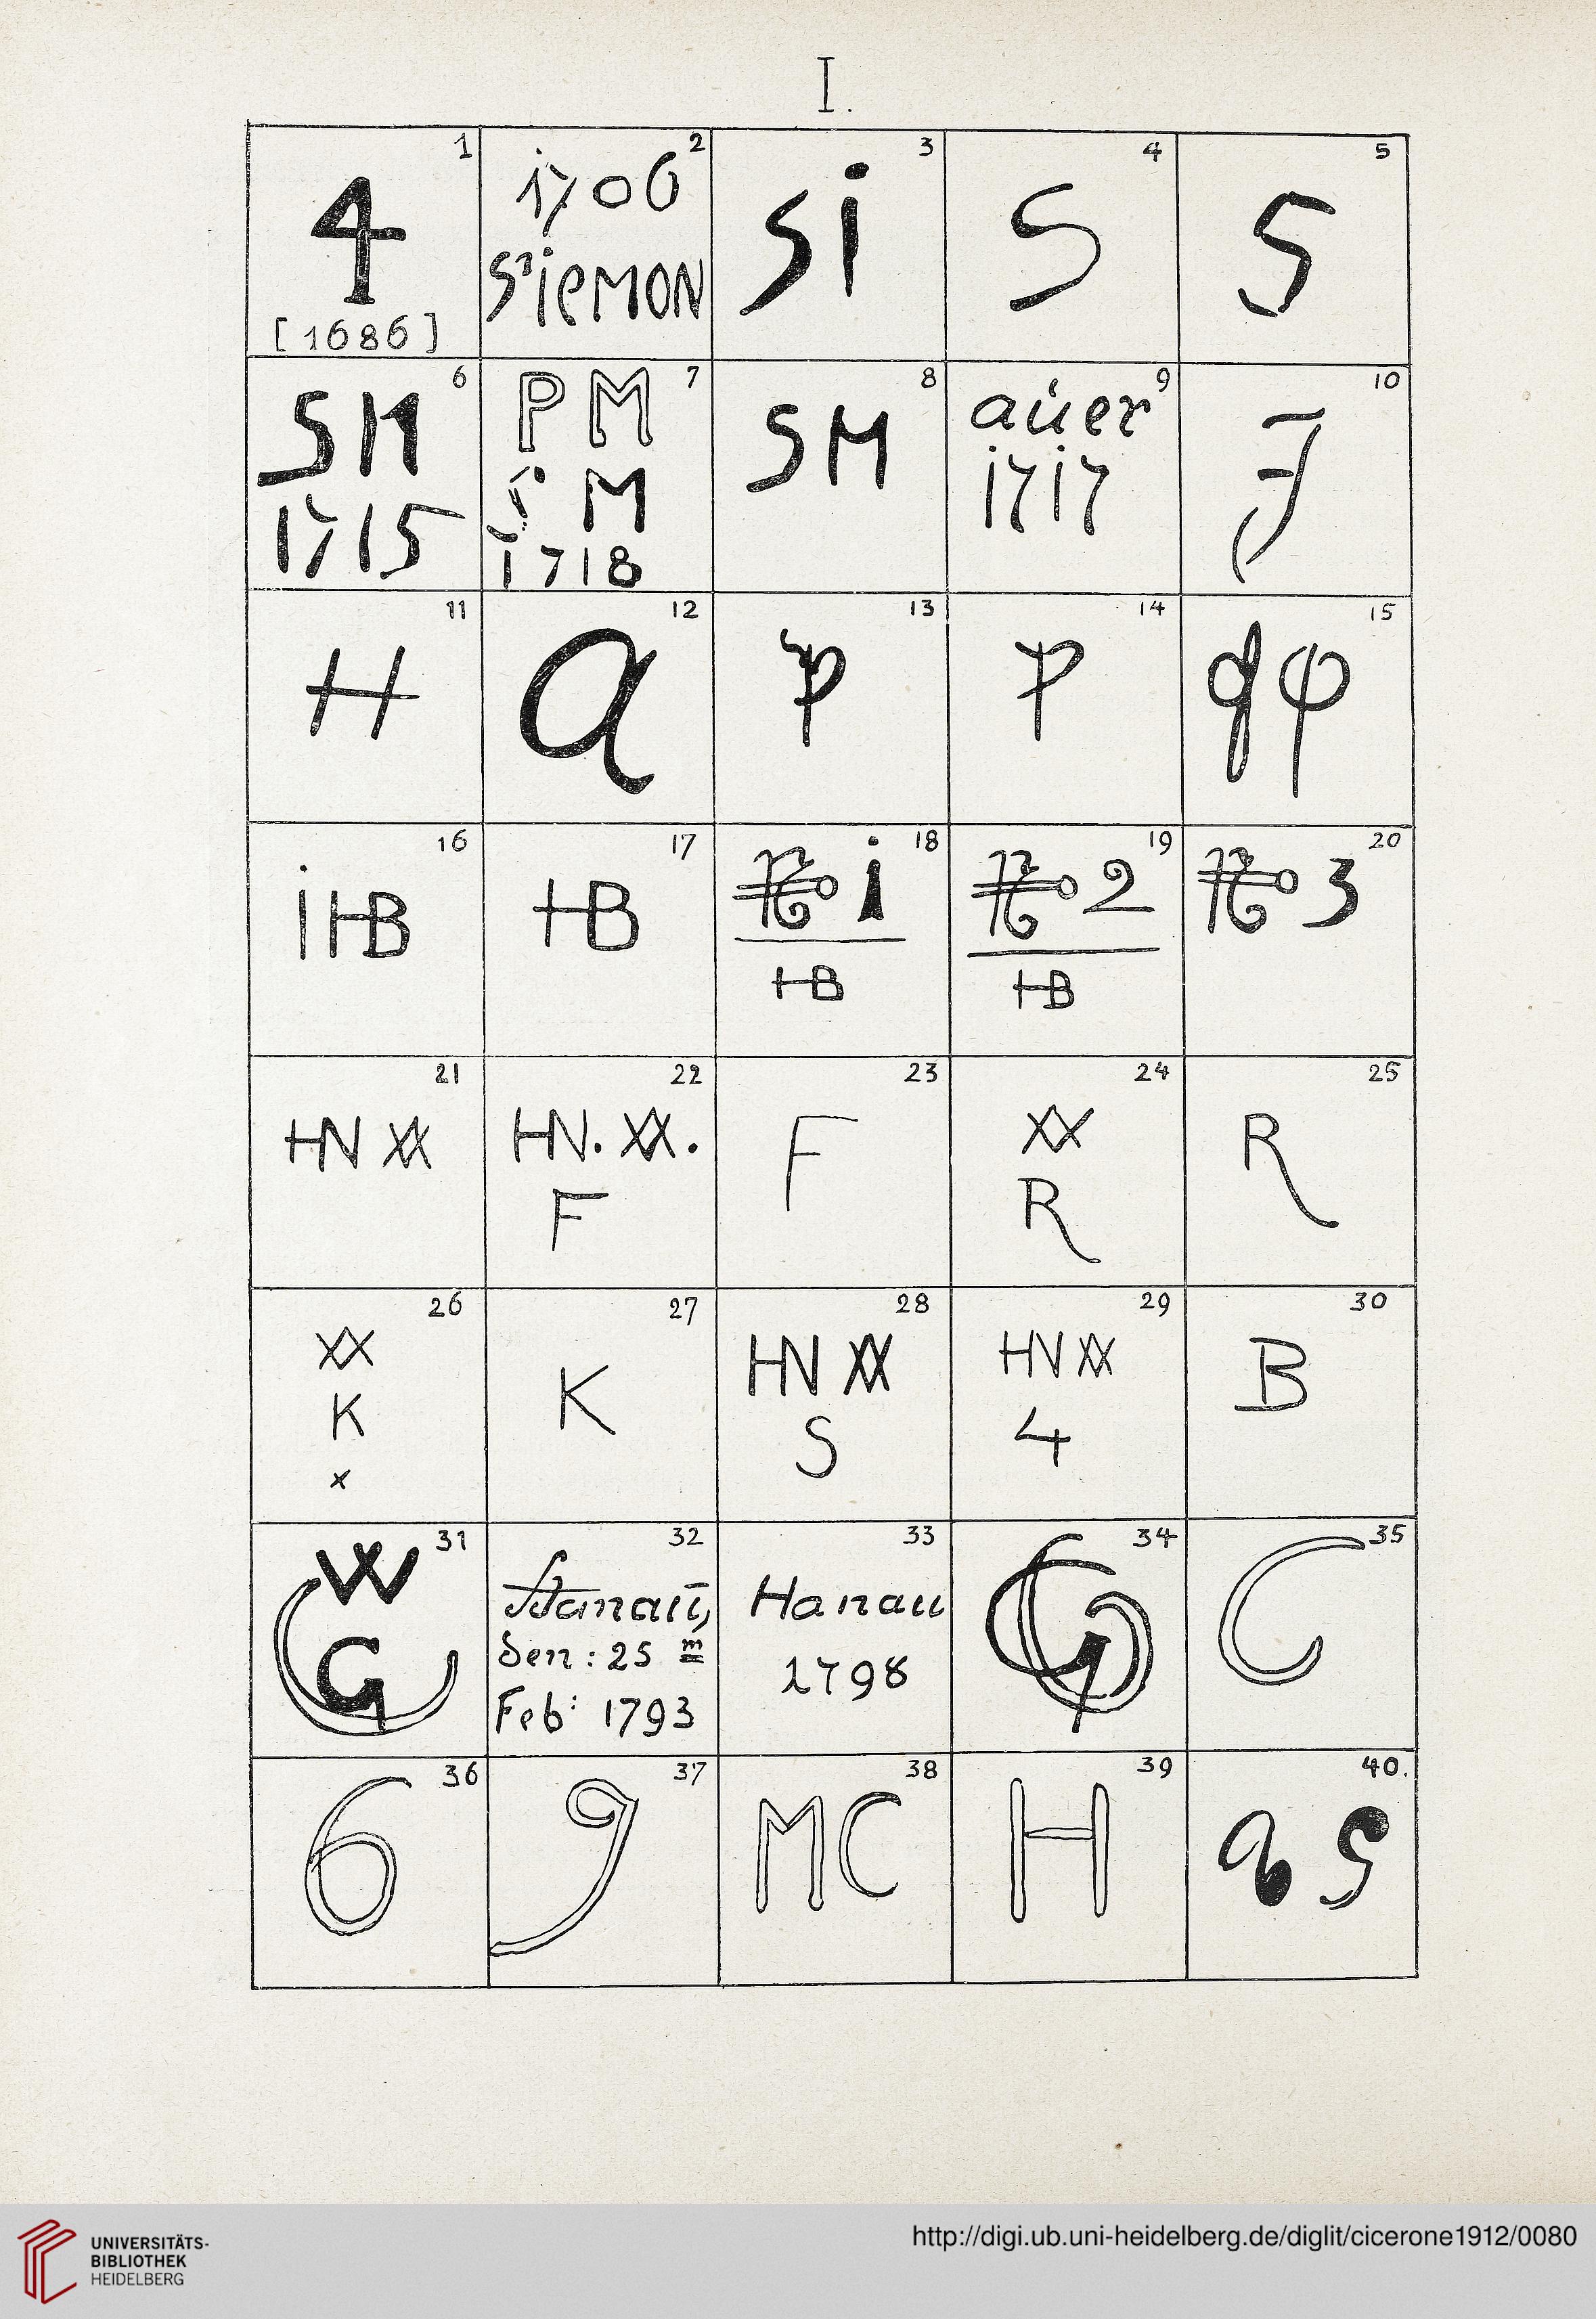 I.
1
4
[1686]
2
1706
SiEMON
3
Si
4
S
5
S
6
SM
1715
7
PM
M
1718
8
SM
9
aúer
1717
10
J
11
H
12
a
13
p
14
P
15
16
iHB
17
HB
18
No i
HB
19
No 2
HB
20
No 3
21
HN XX
22
HN. XX.
F
23
F
24
XX
R
25
R
26
XX
K
x
27
K
28
HN XX
S
29
HN XX
4
30
B
31
W
G
32
Hanau,
den: 25 m
Feb: 1793
33
Hanau
1798
34
35
C
36
6
37
9
38
MC
39
H
40.
UNIVERSITÄTS-
BIBLIOTHEK
HEIDELBERG
http://digi.ub.uni-heidelberg.de/diglit/cicerone1912/0080